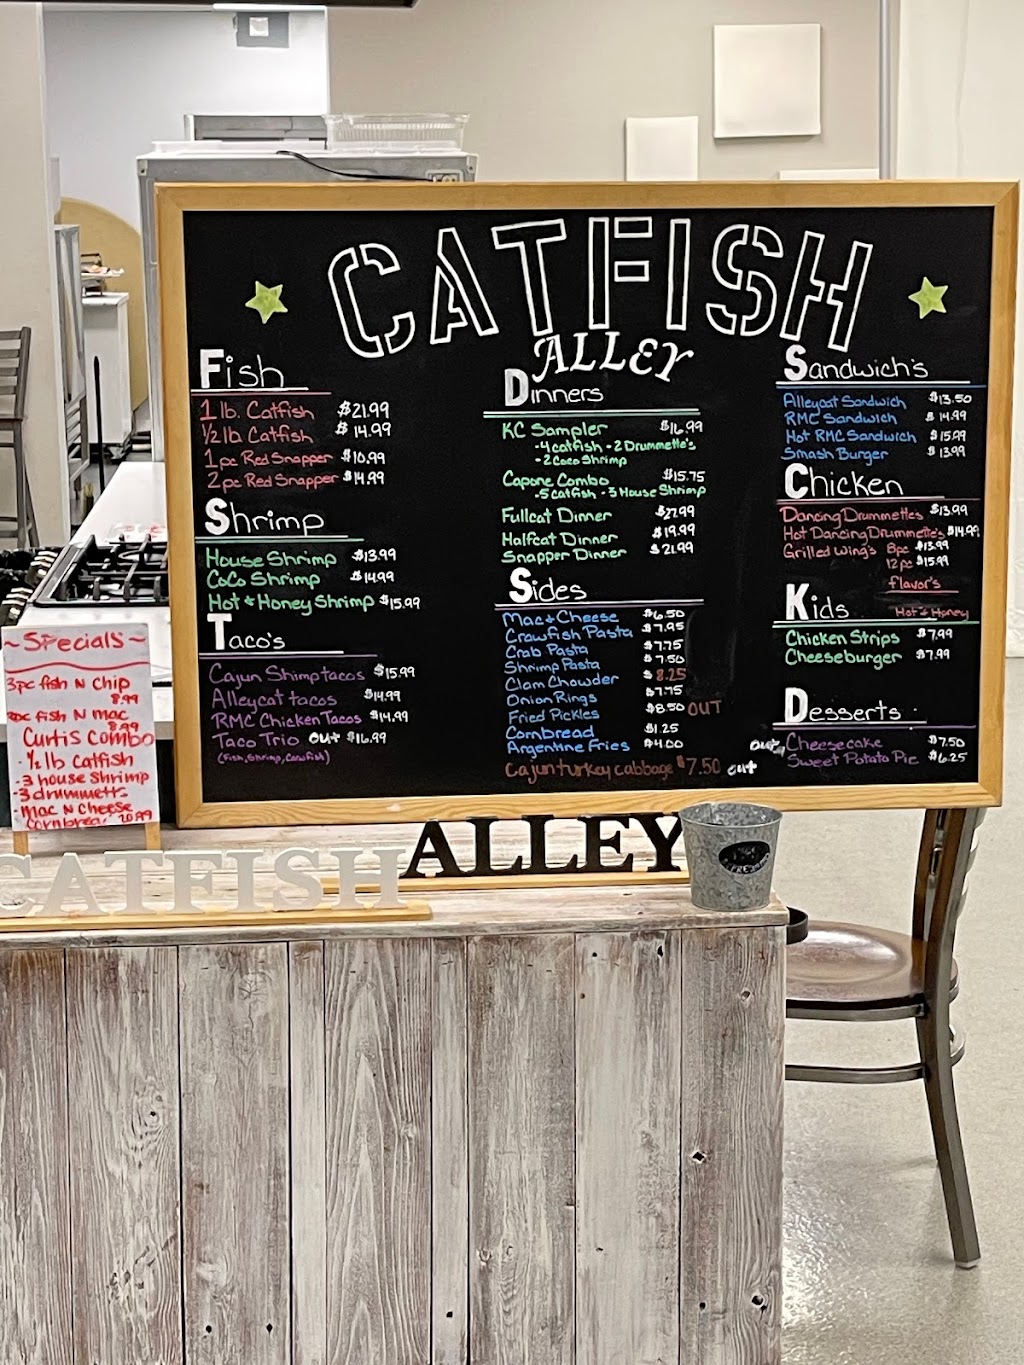 CATFISH
ALLEY
Fish
1 lb. Catfish $21.99
1/2 lb Catfish $14.99
1pc Red Snapper $10.99
2pc Red Snapper $14.99
Shrimp
House Shrimp $13.99
CoCo Shrimp $14.99
Hot & Honey Shrimp $15.99
Taco's
Cajun Shimp tacos $15.99
Alleycat tacos $14.99
RMC Chicken Tacos $14.99
Taco Trio out $16.99
(Fish, Shrimp, Crawfish)
Dinners
KC Sampler $16.99
-4 catfish -2 Drummette's
-2 Coco Shrimp
Capone Combo $15.75
-5 catfish -3 House Shrimp
Fullcat Dinner $27.99
Halfcat Dinner $19.99
Snapper Dinner $21.99
Sides
Mac & Cheese $6.50
Crawfish Pasta $7.95
Crab Pasta $7.75
Shrimp Pasta $7.50
Clam Chowder $8.25
Onion Rings $7.75
Fried Pickles $8.50 OUT
Cornbread $1.25
Argentine Fries $4.00
Cajun turkey cabbage $7.50 out
Sandwich's
Alleycat Sandwich $13.50
RMC Sandwich $14.99
Hot RMC Sandwich $15.99
Smash Burger $13.99
Chicken
Dancing Drummette's $13.99
Hot Dancing Drummette's $14.99
Grilled Wing's 8pc $13.99
12pc $15.99
flavor's
Hot & Honey
Kids
Chicken Strips $7.99
Cheeseburger $7.99
Desserts
out Cheesecake $7.50
Sweet Potato Pie $6.25
~Specials~
3pc fish N chip
8.99
pc fish N mac
8.99
Curtis Combo
- 1/2 lb catfish
- 3 house shrimp
- 3 drummetts
- Mac N Cheese
Cornbread 20.99
CATFISH
ALLEY